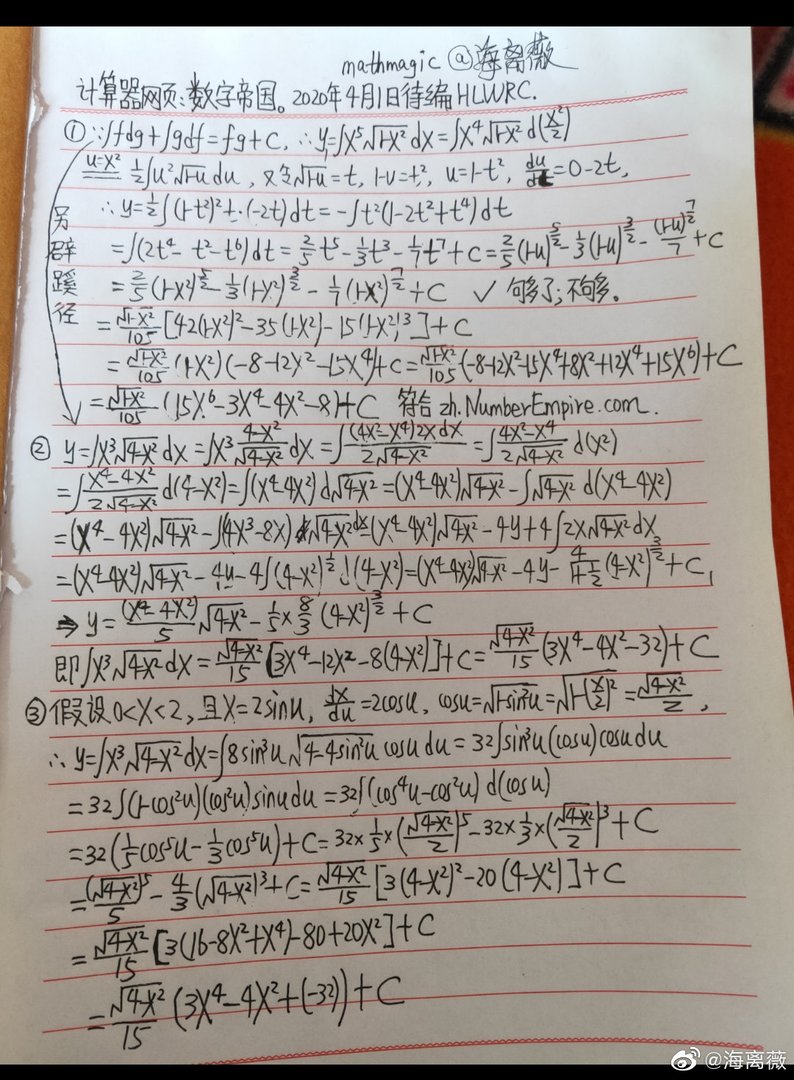 mathmagic @海离薇
计算器网页:数字帝国。2020年4月1日待编HLWRC.
① ∵∫fdg+∫gdf=fg+C, ∴y=∫x⁵√(1-x²)dx=∫x⁴√(1-x²)d(x²/2)
u=x² ½∫u²√(1-u)du, 又令√(1-u)=t, 1-u=t², u=1-t², du/dt=0-2t,
∴y=½∫(1-t²)²t·(-2t)dt=-∫t²(1-2t²+t⁴)dt
=∫(2t⁴-t²-t⁶)dt=2/5t⁵-1/3t³-1/7t⁷+C=2/5(1-u)^(5/2)-1/3(1-u)^(3/2)-(1-u)^(7/2)/7+C
=2/5(1-x²)^(5/2)-1/3(1-x²)^(3/2)-1/7(1-x²)^(7/2)+C ✓ 句多了;不句多。
另辟蹊径
=√(1-x²)/105[42(1-x²)²-35(1-x²)-15(1-x²)³]+C
=√(1-x²)/105(1-x²)(-8-12x²-15x⁴)+C=√(1-x²)/105(-8-12x²-15x⁴+8x²+12x⁴+15x⁶)+C
=√(1-x²)/105(15x⁶-3x⁴-4x²-8)+C 符合zh.NumberEmpire.com.
② y=∫x³√(4-x²)dx=∫x³(4-x²)/√(4-x²)dx=∫(4x²-x⁴)2xdx/(2√(4-x²))=∫(4x²-x⁴)/(2√(4-x²))d(x²)
=∫(x⁴-4x²)/(2√(4-x²))d(4-x²)=∫(x⁴-4x²)d√(4-x²)=(x⁴-4x²)√(4-x²)-∫√(4-x²)d(x⁴-4x²)
=(x⁴-4x²)√(4-x²)-∫(4x³-8x)√(4-x²)dx=(x⁴-4x²)√(4-x²)-4y+4∫2x√(4-x²)dx
=(x⁴-4x²)√(4-x²)-4y-4∫(4-x²)^(1/2)d(4-x²)=(x⁴-4x²)√(4-x²)-4y-4/(1+1/2)(4-x²)^(3/2)+C,
⇒y=(x⁴-4x²)/5√(4-x²)-1/5×8/3(4-x²)^(3/2)+C
即∫x³√(4-x²)dx=√(4-x²)/15[3x⁴-12x²-8(4-x²)]+C=√(4-x²)/15(3x⁴-4x²-32)+C
③ 假设0<x<2, 且x=2sinu, dx/du=2cosu, cosu=√(1-sin²u)=√(1-(x/2)²)=√(4-x²)/2,
∴y=∫x³√(4-x²)dx=∫8sin³u√(4-4sin²u)cosudu=32∫sin³u(cosu)cosudu
=32∫(1-cos²u)(cos²u)sinudu=32∫(cos⁴u-cos²u)d(cosu)
=32(1/5cos⁵u-1/3cos⁵u)+C=32×1/5×(√(4-x²)/2)⁵-32×1/3×(√(4-x²)/2)³+C
=(√(4-x²))⁵/5-4/3(√(4-x²))³+C=√(4-x²)/15[3(4-x²)²-20(4-x²)]+C
=√(4-x²)/15[3(16-8x²+x⁴)-80+20x²]+C
=√(4-x²)/15(3x⁴-4x²+(-32))+C
@海离薇